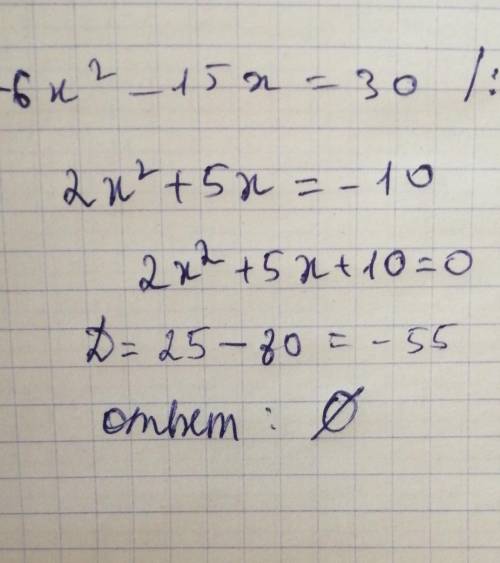 -6x² - 15x = 30 /:
2x² + 5x = -10
2x² + 5x + 10 = 0
D = 25 - 80 = -55
ответ: ∅